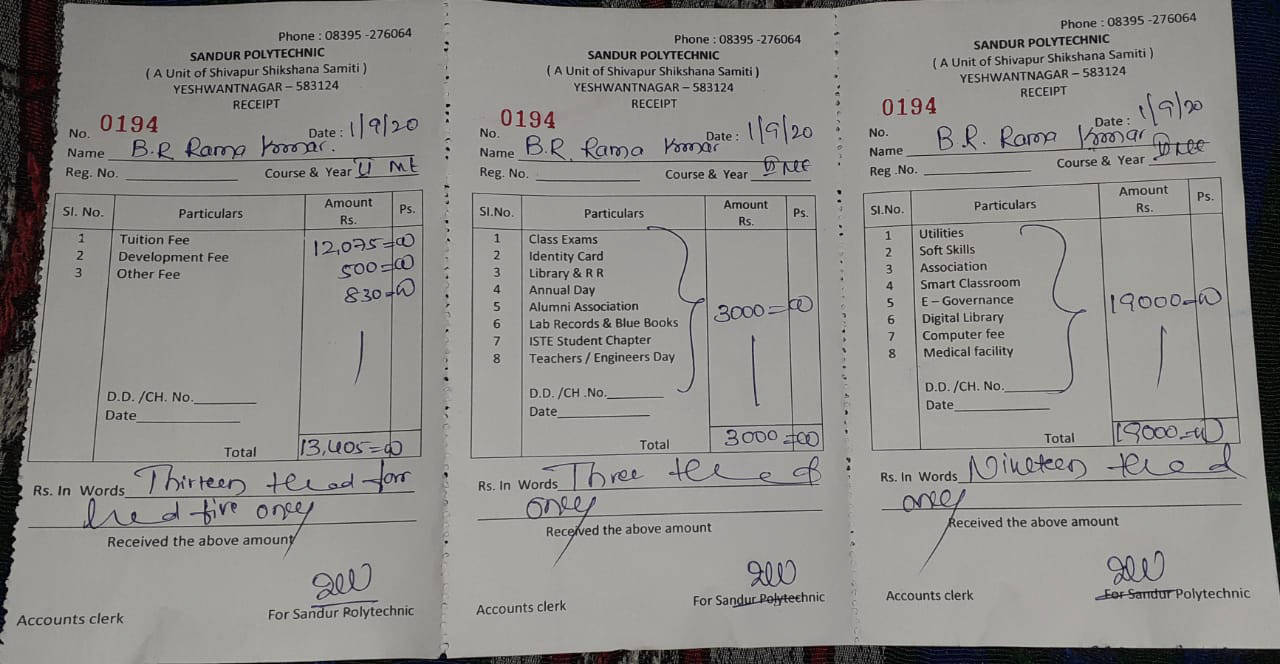 Phone : 08395 -276064
SANDUR POLYTECHNIC
( A Unit of Shivapur Shikshana Samiti )
YESHWANTNAGAR – 583124
RECEIPT
No. 0194 Date : 1/9/20
Name B.R Rama Kumar.
Reg. No. Course & Year II ME
Sl. No. Particulars Amount Rs. Ps.
1 Tuition Fee 12,075=00
2 Development Fee 500=00
3 Other Fee 830=00
D.D. /CH. No.
Date
Total 13,405=00
Rs. In Words Thirteen
five only
Received the above amount
Accounts clerk For Sandur Polytechnic
Phone : 08395 -276064
SANDUR POLYTECHNIC
( A Unit of Shivapur Shikshana Samiti )
YESHWANTNAGAR – 583124
RECEIPT
No. 0194 Date : 1/9/20
Name B.R. Rama Kumar
Reg. No. Course & Year
Sl.No. Particulars Amount Rs. Ps.
1 Class Exams
2 Identity Card
3 Library & R R
4 Annual Day
5 Alumni Association 3000=00
6 Lab Records & Blue Books
7 ISTE Student Chapter
8 Teachers / Engineers Day
D.D. /CH .No.
Date
Total 3000=00
Rs. In Words Three
only
Received the above amount
Accounts clerk For Sandur Polytechnic
Phone : 08395 -276064
SANDUR POLYTECHNIC
( A Unit of Shivapur Shikshana Samiti )
YESHWANTNAGAR – 583124
RECEIPT
No. 0194 Date : 1/9/20
Name B.R. Rama Kumar
Reg .No. Course & Year
Sl.No. Particulars Amount Rs. Ps.
1 Utilities
2 Soft Skills
3 Association
4 Smart Classroom
5 E – Governance 19000=00
6 Digital Library
7 Computer fee
8 Medical facility
D.D. /CH. No.
Date
Total 19000=00
Rs. In Words Nineteen
only
Received the above amount
Accounts clerk For Sandur Polytechnic